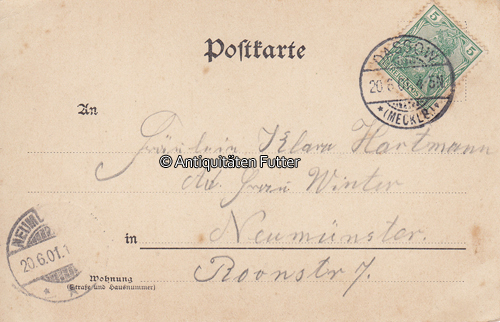 Postkarte
5 5
DASSOW
20.6.01. 4-5N.
*(MECKLB)*
An
Fräulein Klara Hartmann
© Antiquitäten Futter
Frau Winter
in Neumünster.
Roonstr 7.
NEUM
20.6.01.
Wohnung
(Straße und Hausnummer)